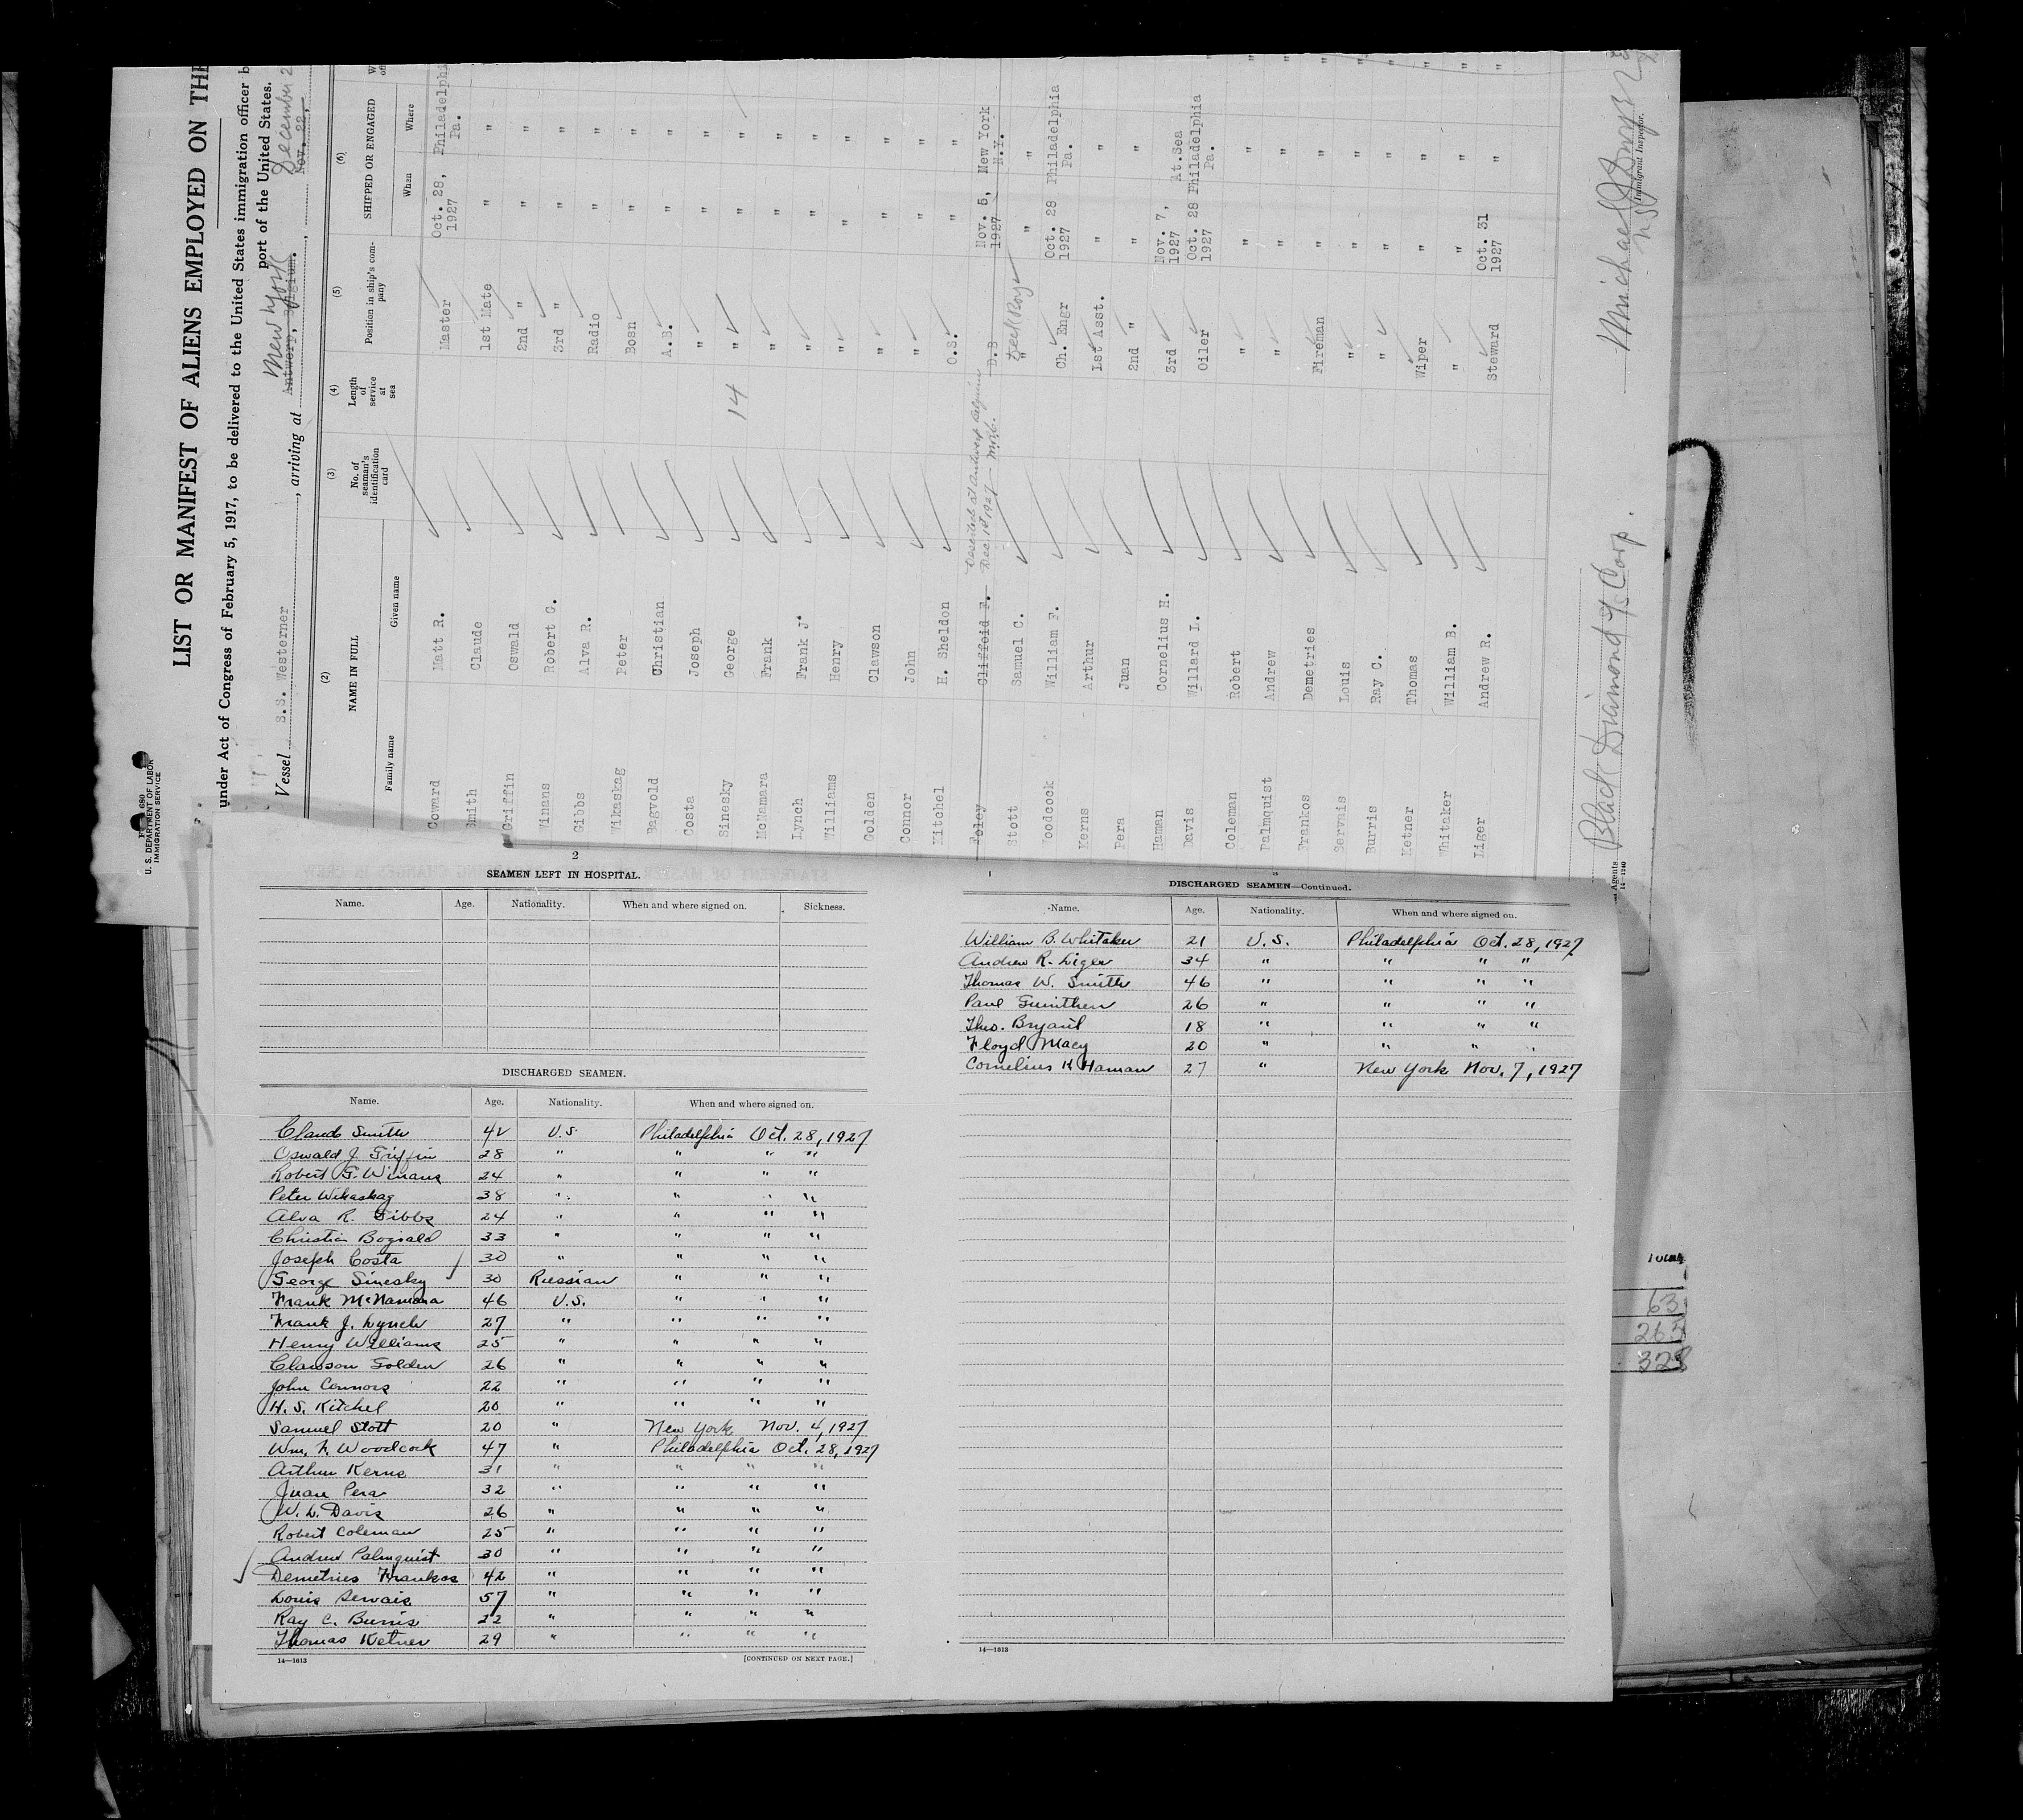 LIST OR MANIFEST OF ALIENS EMPLOYED ON THE
under Act of Congress of February 5, 1917, to be delivered to the United States immigration officer b
port of the United States.
Vessel S.S. Westerner, arriving at Antwerp, Belgium. New York, Nov. 22, December 2
680
U. S. DEPARTMENT OF LABOR
IMMIGRATION SERVICE
(2) (3) (4) (5) (6)
NAME IN FULL No. of seaman's identification card Length of service at sea Position in ship's company SHIPPED OR ENGAGED
Family name Given name When Where
Coward Matt R. Master Oct. 28, 1927 Philadelphi Pa.
Smith Claude 1st Mate " "
Griffin Oswald 2nd " " "
Winans Robert G. 3rd " " "
Gibbs Alva R. Radio " "
Wikaskag Peter Bosn " "
Bagvold Christian A.B. " "
Costa Joseph " " "
Sinesky George 14 " " "
McNamara Frank " " "
Lynch Frank J. " " "
Williams Henry " " "
Golden Clawson " " "
Connor John " " "
Kitchel H. Sheldon O.S. " "
Foley Cliffoid F. Deserted at Antwerp Belgium Dec. 1st 1927 D.B Nov. 5, 1927 New York N.Y.
Stott Samuel C. " Deck Boy " "
Woodcock William F. Ch. Engr Oct. 28 1927 Philadelphia Pa.
Kerns Arthur 1st Asst. " "
Pera Juan 2nd " " "
Haman Cornelius H. 3rd Nov. 7, 1927 At.Sea
Davis Willard L. Oiler Oct. 28 1927 Philadelphia Pa.
Coleman Robert " " "
Palmquist Andrew " " "
Frankos Demetries Fireman " "
Servais Louis " " "
Burris Ray C. " " "
Ketner Thomas Wiper " "
Whitaker William B. " " "
Liger Andrew R. Steward Oct. 31 1927 "
Black Diamond SS Corp.
Agents
14-1240
Michael J.
Immigrant Inspector.
2
SEAMEN LEFT IN HOSPITAL.
Name. Age. Nationality. When and where signed on. Sickness.
DISCHARGED SEAMEN.
Name. Age. Nationality. When and where signed on.
Claude Smith 42 U.S. Philadelphia Oct. 28, 1927
Oswald J Griffin 28 " " " "
Robert G. Winans 24 " " " "
Peter Wikaskag 38 " " " "
Alva R. Gibbs 24 " " " "
Christia Bogvald 33 " " " "
Joseph Costa 30 " " " "
George Sinesky 30 Russian " " "
Frank McNamara 46 U.S. " " "
Frank J. Lynch 27 " " " "
Henry Williams 25 " " " "
Clawson Golden 26 " " " "
John Connors 22 " " " "
H. S. Kitchel 20 " " " "
Samuel Stott 20 " New York Nov. 4, 1927
Wm. F. Woodcock 47 " Philadelphia Oct. 28, 1927
Arthur Kerns 31 " " " "
Juan Pera 32 " " " "
W. L. Davis 26 " " " "
Robert Coleman 25 " " " "
Andrew Palmquist 30 " " " "
Demetries Frankos 42 " " " "
Louis Servais 57 " " " "
Ray C. Burris 22 " " " "
Thomas Ketner 29 " " " "
14—1613 [CONTINUED ON NEXT PAGE.]
DISCHARGED SEAMEN—Continued.
Name. Age. Nationality. When and where signed on.
William B. Whitaker 21 U.S. Philadelphia Oct. 28, 1927
Andrew R. Liger 34 " " " "
Thomas W. Smith 46 " " " "
Paul Gunther 26 " " " "
Theo. Bryant 18 " " " "
Floyd Macy 20 " " "
Cornelius H Haman 27 " New York Nov. 7, 1927
14—1613
Total
63
265
328